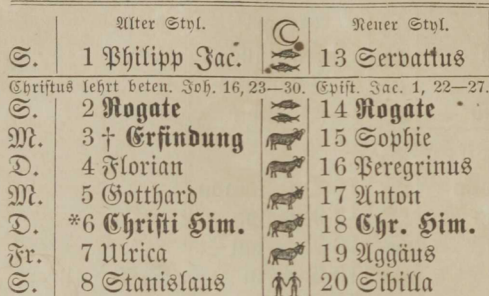 Alter Styl. Neuer Styl.
S. 1 Philipp Jac. 13 Servatius
Christus lehrt beten. Joh. 16, 23—30. Epist. Jac. 1, 22—27.
S. 2 Rogate 14 Rogate
M. 3 † Erfindung 15 Sophie
D. 4 Florian 16 Peregrinus
M. 5 Gotthard 17 Anton
D. *6 Christi Him. 18 Chr. Him.
Fr. 7 Ulrica 19 Aggäus
S. 8 Stanislaus 20 Sibilla